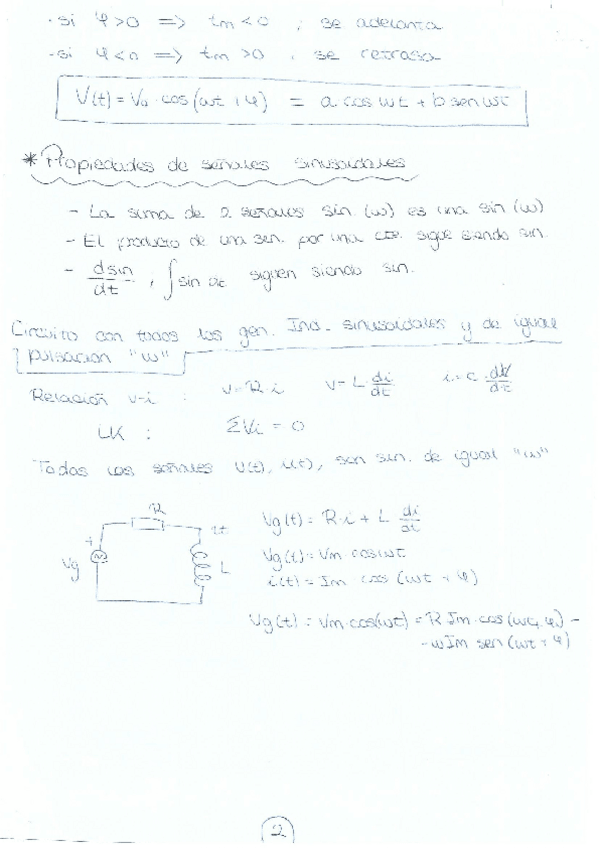 · si φ>0 => tm<0 , se adelanta
- si φ<0 => tm>0 , se retrasa
V(t) = V0 · cos(ωt + φ) = a cos ωt + b sen ωt
* Propiedades de señales sinusoidales
- La suma de 2 señales sin. (ω) es una sin (ω)
- El producto de una sen. por una cte. sigue siendo sin.
- dsin/dt , ∫ sin dt siguen siendo sin.
Circuito con todos los gen. Ind. sinusoidales y de igual
pulsacion "ω"
Relación v-i : v=R·i v=L di/dt i=C·dV/dt
LK : ΣVi = 0
Todas las señales v(t), i(t), son sin. de igual "ω"
R
+
Vg
L
Vg(t) = R·i + L di/dt
Vg(t) = Vm cosωt
i(t) = Im cos (ωt + φ)
Vg(t) = Vm·cos(ωt) = R Im·cos(ωt+φ) -
-ωIm sen(ωt+φ)
2